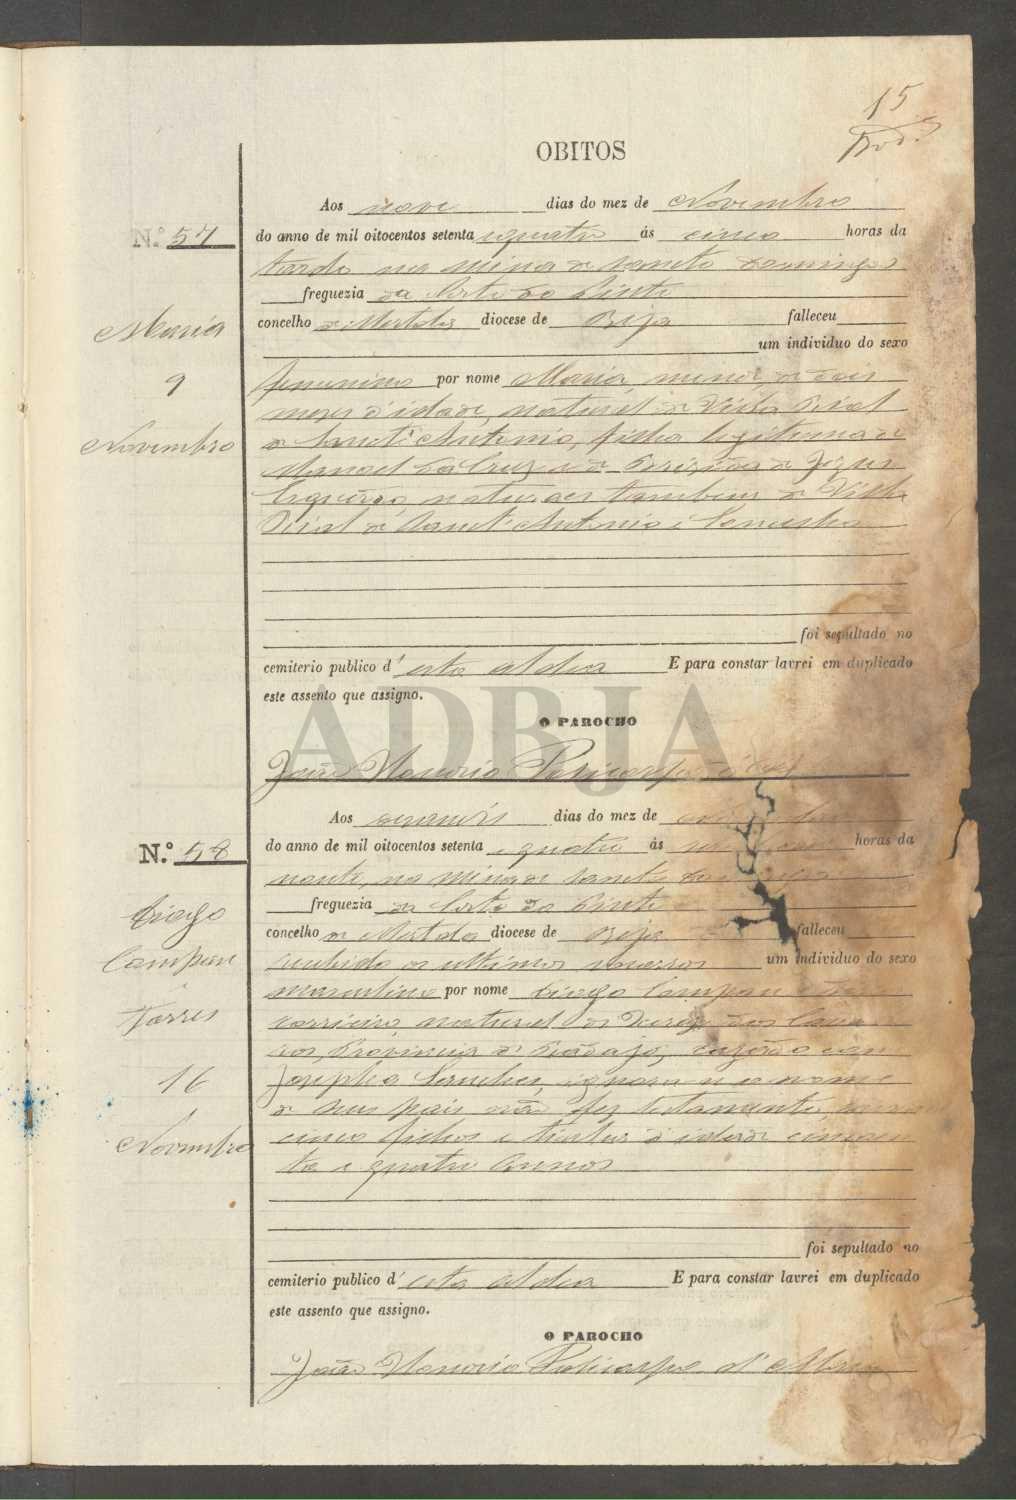 15
OBITOS
Aos nove dias do mez de Novembro
N.º 57
do anno de mil oitocentos setenta e quatro ás cinco horas da
tarde na Mina de Sancto Domingos
freguezia da Corte do Pinto
Maria
concelho de Mertola diocese de Beja falleceu
um individuo do sexo
9
femenino por nome Maria, menor, de dois
mezes d'idade, natural de Villa Real
Novembro
de Sanct'Antonio, filha legitima de
Manoel da Cruz e de de Jezus
naturaes tambem de Villa
Real de Sanct'Antonio e
foi sepultado no
cemiterio publico d'esta aldea E para constar lavrei em duplicado
este assento que assigno.
O PAROCHO
ADBJA
João Honorio Policarpo d'
Aos dezaseis dias do mez de
N.º 58
do anno de mil oitocentos setenta e quatro ás horas da
noute, na Mina de Sancto
freguezia da Corte do Pinto
Diogo
concelho de Mertola diocese de Beja falleceu
Campan
recebido os ultimos um individuo do sexo
masculino por nome Diogo Campan
Torres
natural de
Provincia de Badajoz, cazado com
16
Josepha Sanches, ignora-se o nome
de seus pais não fez testamento,
Novembro
cinco filhos e tinha d'idade cincoen
ta e quatro annos
foi sepultado no
cemiterio publico d'esta aldea E para constar lavrei em duplicado
este assento que assigno.
O PAROCHO
João Honorio Policarpo d'